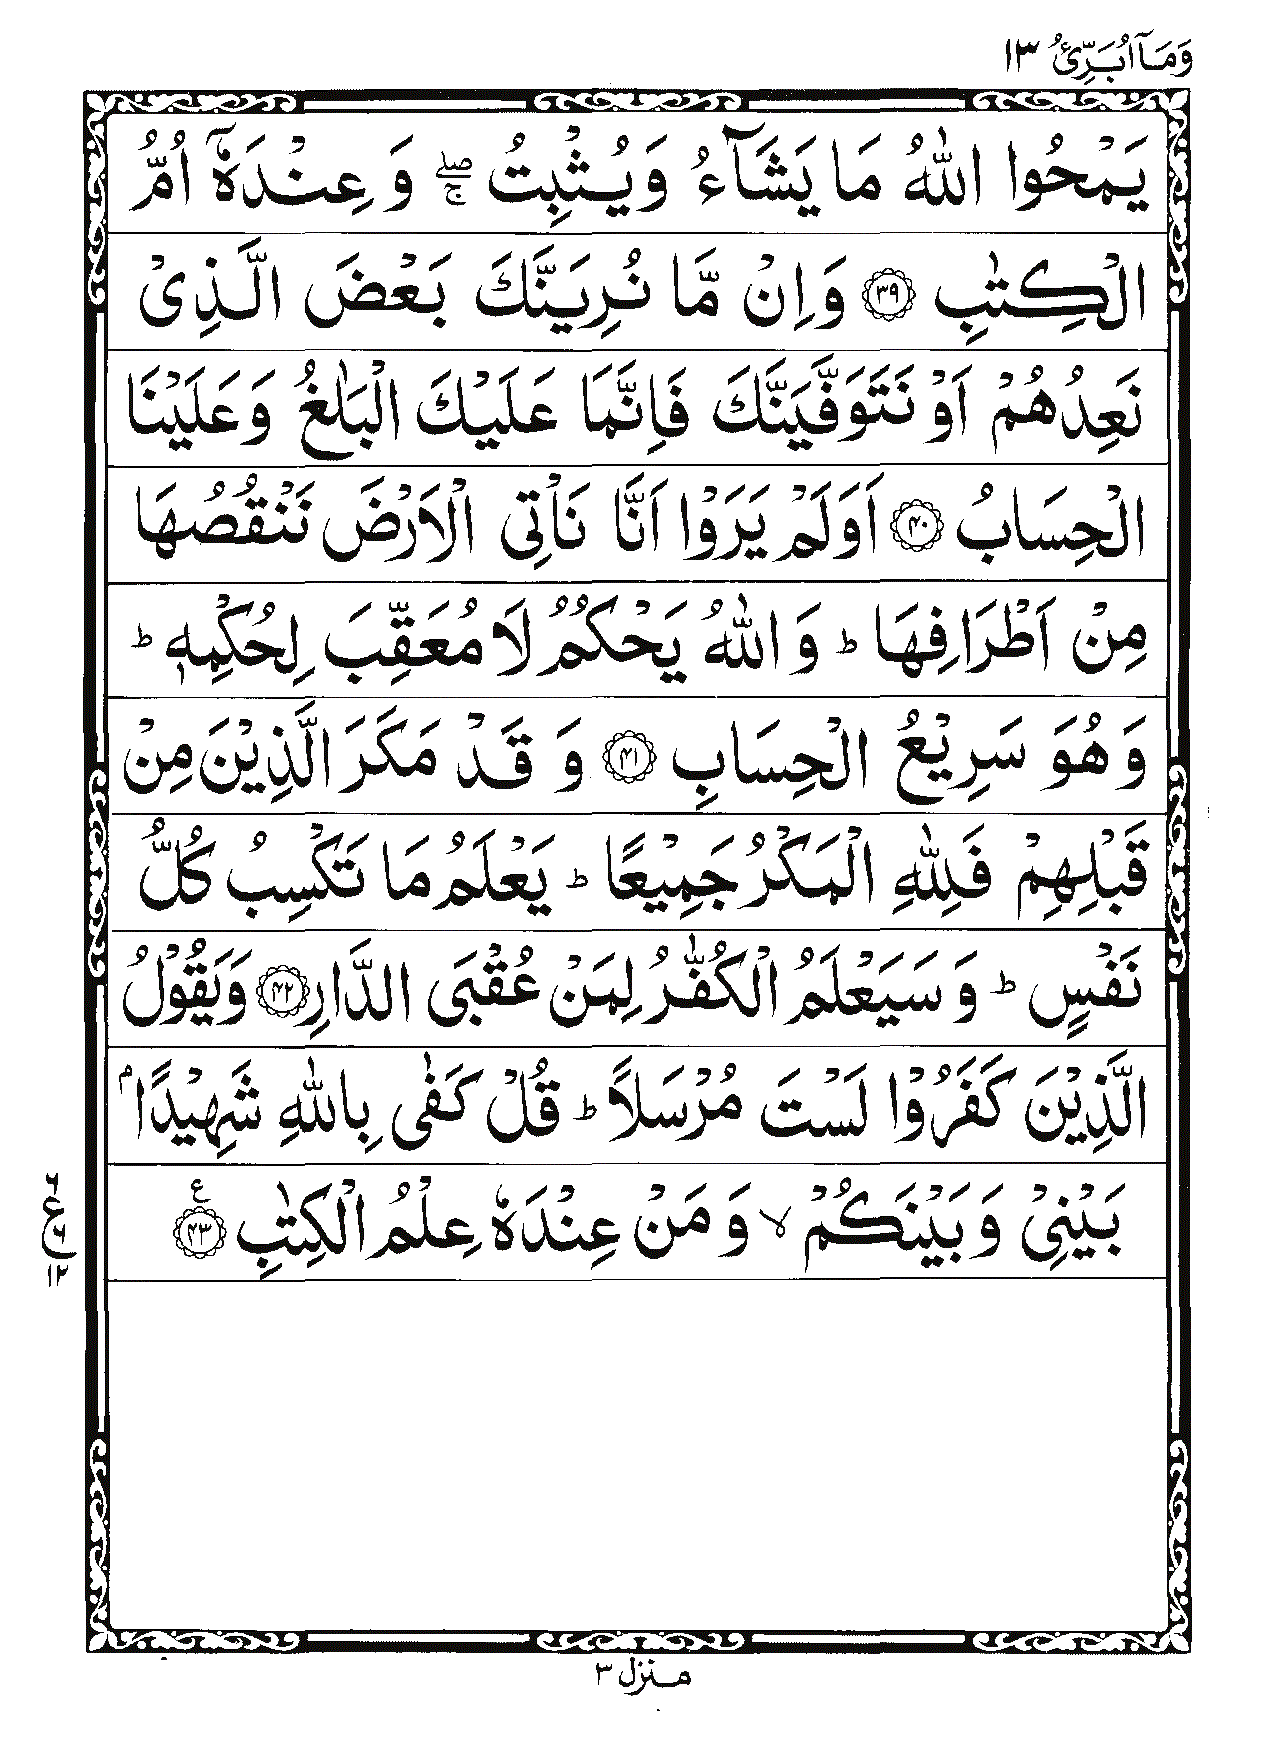 وَمَاۤ اُبَرِّئُ ۱۳
يَمْحُوا اللّٰهُ مَا يَشَآءُ وَيُثْبِتُ ۖۚ وَ عِنْدَهٗۤ اُمُّ
الْكِتٰبِ ﴿۳۹﴾ وَاِنْ مَّا نُرِيَنَّكَ بَعْضَ الَّذِىْ
نَعِدُهُمْ اَوْ نَتَوَفَّيَنَّكَ فَاِنَّمَا عَلَيْكَ الْبَلٰغُ وَعَلَيْنَا
الْحِسَابُ ﴿۴۰﴾ اَوَلَمْ يَرَوْا اَنَّا نَاْتِى الْاَرْضَ نَنْقُصُهَا
مِنْ اَطْرَافِهَا ؕ وَ اللّٰهُ يَحْكُمُ لَا مُعَقِّبَ لِحُكْمِهٖ ؕ
وَ هُوَ سَرِيْعُ الْحِسَابِ ﴿۴۱﴾ وَ قَدْ مَكَرَ الَّذِيْنَ مِنْ
قَبْلِهِمْ فَلِلّٰهِ الْمَكْرُ جَمِيْعًا ؕ يَعْلَمُ مَا تَكْسِبُ كُلُّ
نَفْسٍ ؕ وَ سَيَعْلَمُ الْكُفّٰرُ لِمَنْ عُقْبَى الدَّارِ ﴿۴۲﴾ وَيَقُوْلُ
الَّذِيْنَ كَفَرُوْا لَسْتَ مُرْسَلًا ؕ قُلْ كَفٰى بِاللّٰهِ شَهِيْدًاۢ
بَيْنِىْ وَ بَيْنَكُمْ ۙ وَ مَنْ عِنْدَهٗ عِلْمُ الْكِتٰبِ ﴿۴۳﴾ ع
۶
ع
۶
۱۲
منزل ۳